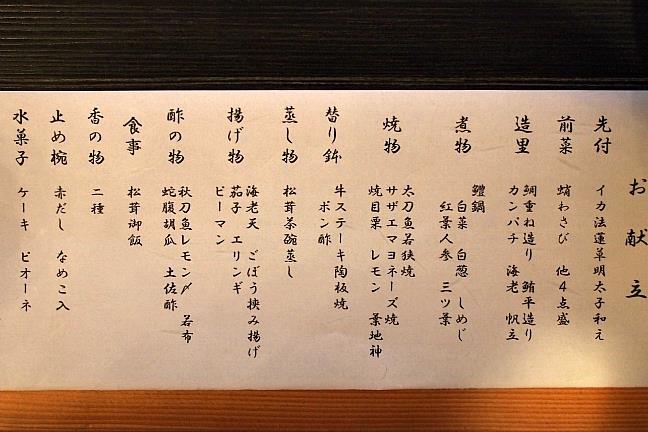 お献立
先付
イカ法蓮草明太子和え
前菜
蛸わさび 他4点盛
造里
鯛重ね造り 鮪平造り
カンパチ 海老 帆立
煮物
鱧鍋
白菜 白葱 しめじ
紅葉人参 三ツ葉
焼物
太刀魚若狭焼
サザエマヨネーズ焼
焼目栗 レモン 葉地神
替り鉢
牛ステーキ陶板焼
ポン酢
蒸し物
松茸茶碗蒸し
揚げ物
海老天 ごぼう挟み揚げ
茄子 エリンギ
ピーマン
酢の物
秋刀魚レモン〆 若布
蛇腹胡瓜 土佐酢
食事
松茸御飯
香の物
二種
止め椀
赤だし なめこ入
水菓子
ケーキ ピオーネ